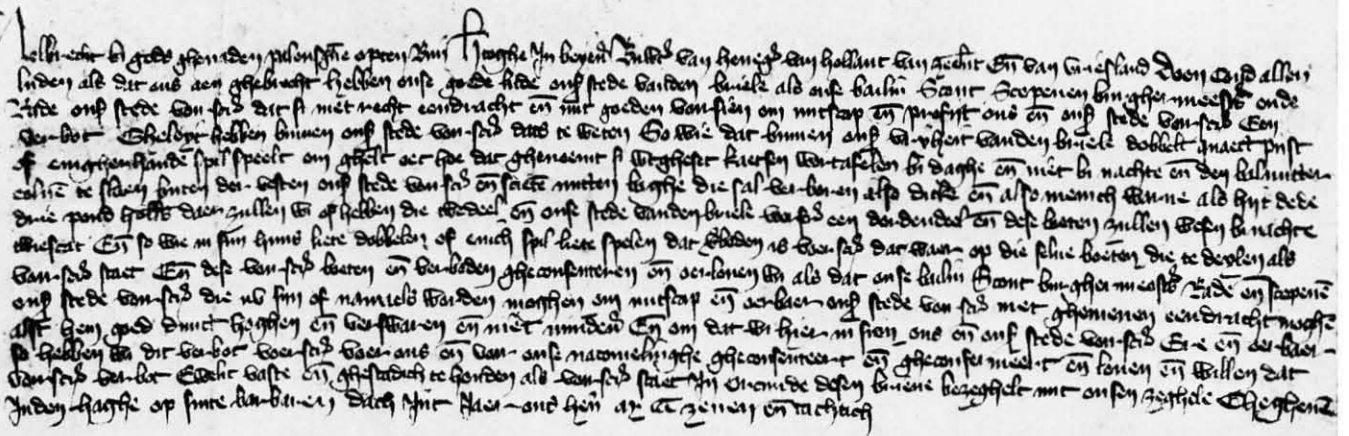 Aelbrecht bi gods ghenaden palensgreve opten Rijn Hertoghe In beyeren Ruwaert van heneg van hollant van zeelant En van vrieslant Doen cond allen
luden als dat ons aen ghebrocht hebben onse goede lude ons stede vanden briele als onse baeliu Scout Scepenen burghermeesters ende
Rade ons stede voirscr dat si met recht eendracht en mit goeden voirsien om nutscap en profijt ons en ons stede voirscr Een
verbot Gheleyt hebben binnen ons stede voirscr dats te weten So wie dat binnen ons vryheit vanden briele dobbelt quaect putst
of enigherhande spel speelt om ghelt oec hoe dat ghenoemt si wtgheset kaetsen wortafelen bi daghe en niet bi nachte en den bal mitter
colve te slaen buten der vesten ons stede voirscr en scieten mitten boghe die sal verboren also dicke en also menich werve als hijt dede
drie pond hollts daer zullen wi of hebben die twedeel en onse stede vanden briele voirscr een derdendeel en dese boeten zullen wesen bi nachte
twiscat En so wie in sijn huus liete dobbelen of enich spil liete spelen dat verboden is voirscr dat waer op die selve boeten die te deylen als
voirscr staet En dese voirscr boeten en verboden gheconsenteren en oerloven wi als dat onse baeliu Scout burghermeesters Rade en scepene
ons stede voirscr die nu sijn of namaels worden moghen om nutscap en oerbaer ons stede voirscr met ghemenen eendracht moghen
alst hem goed dunct hoghen en verswaren en niet minderen En om dat wi hier in sien ons en ons stede voirscr Ere en oerbaer
so hebben wi dit verbot voirscr voer ons en voir onse nacomelinghe gheconsenteert en gheconfirmeert en loven en willen dat
voirscr verbot Ewelic vaste en ghestadich te houden als voirscr staet In Orconde desen brieve bezeghelt mit onsen zeghele Ghegheven
Inden haghe op sinte barbaren dach Int Jaer ons heren M CCC zeven en tachtich